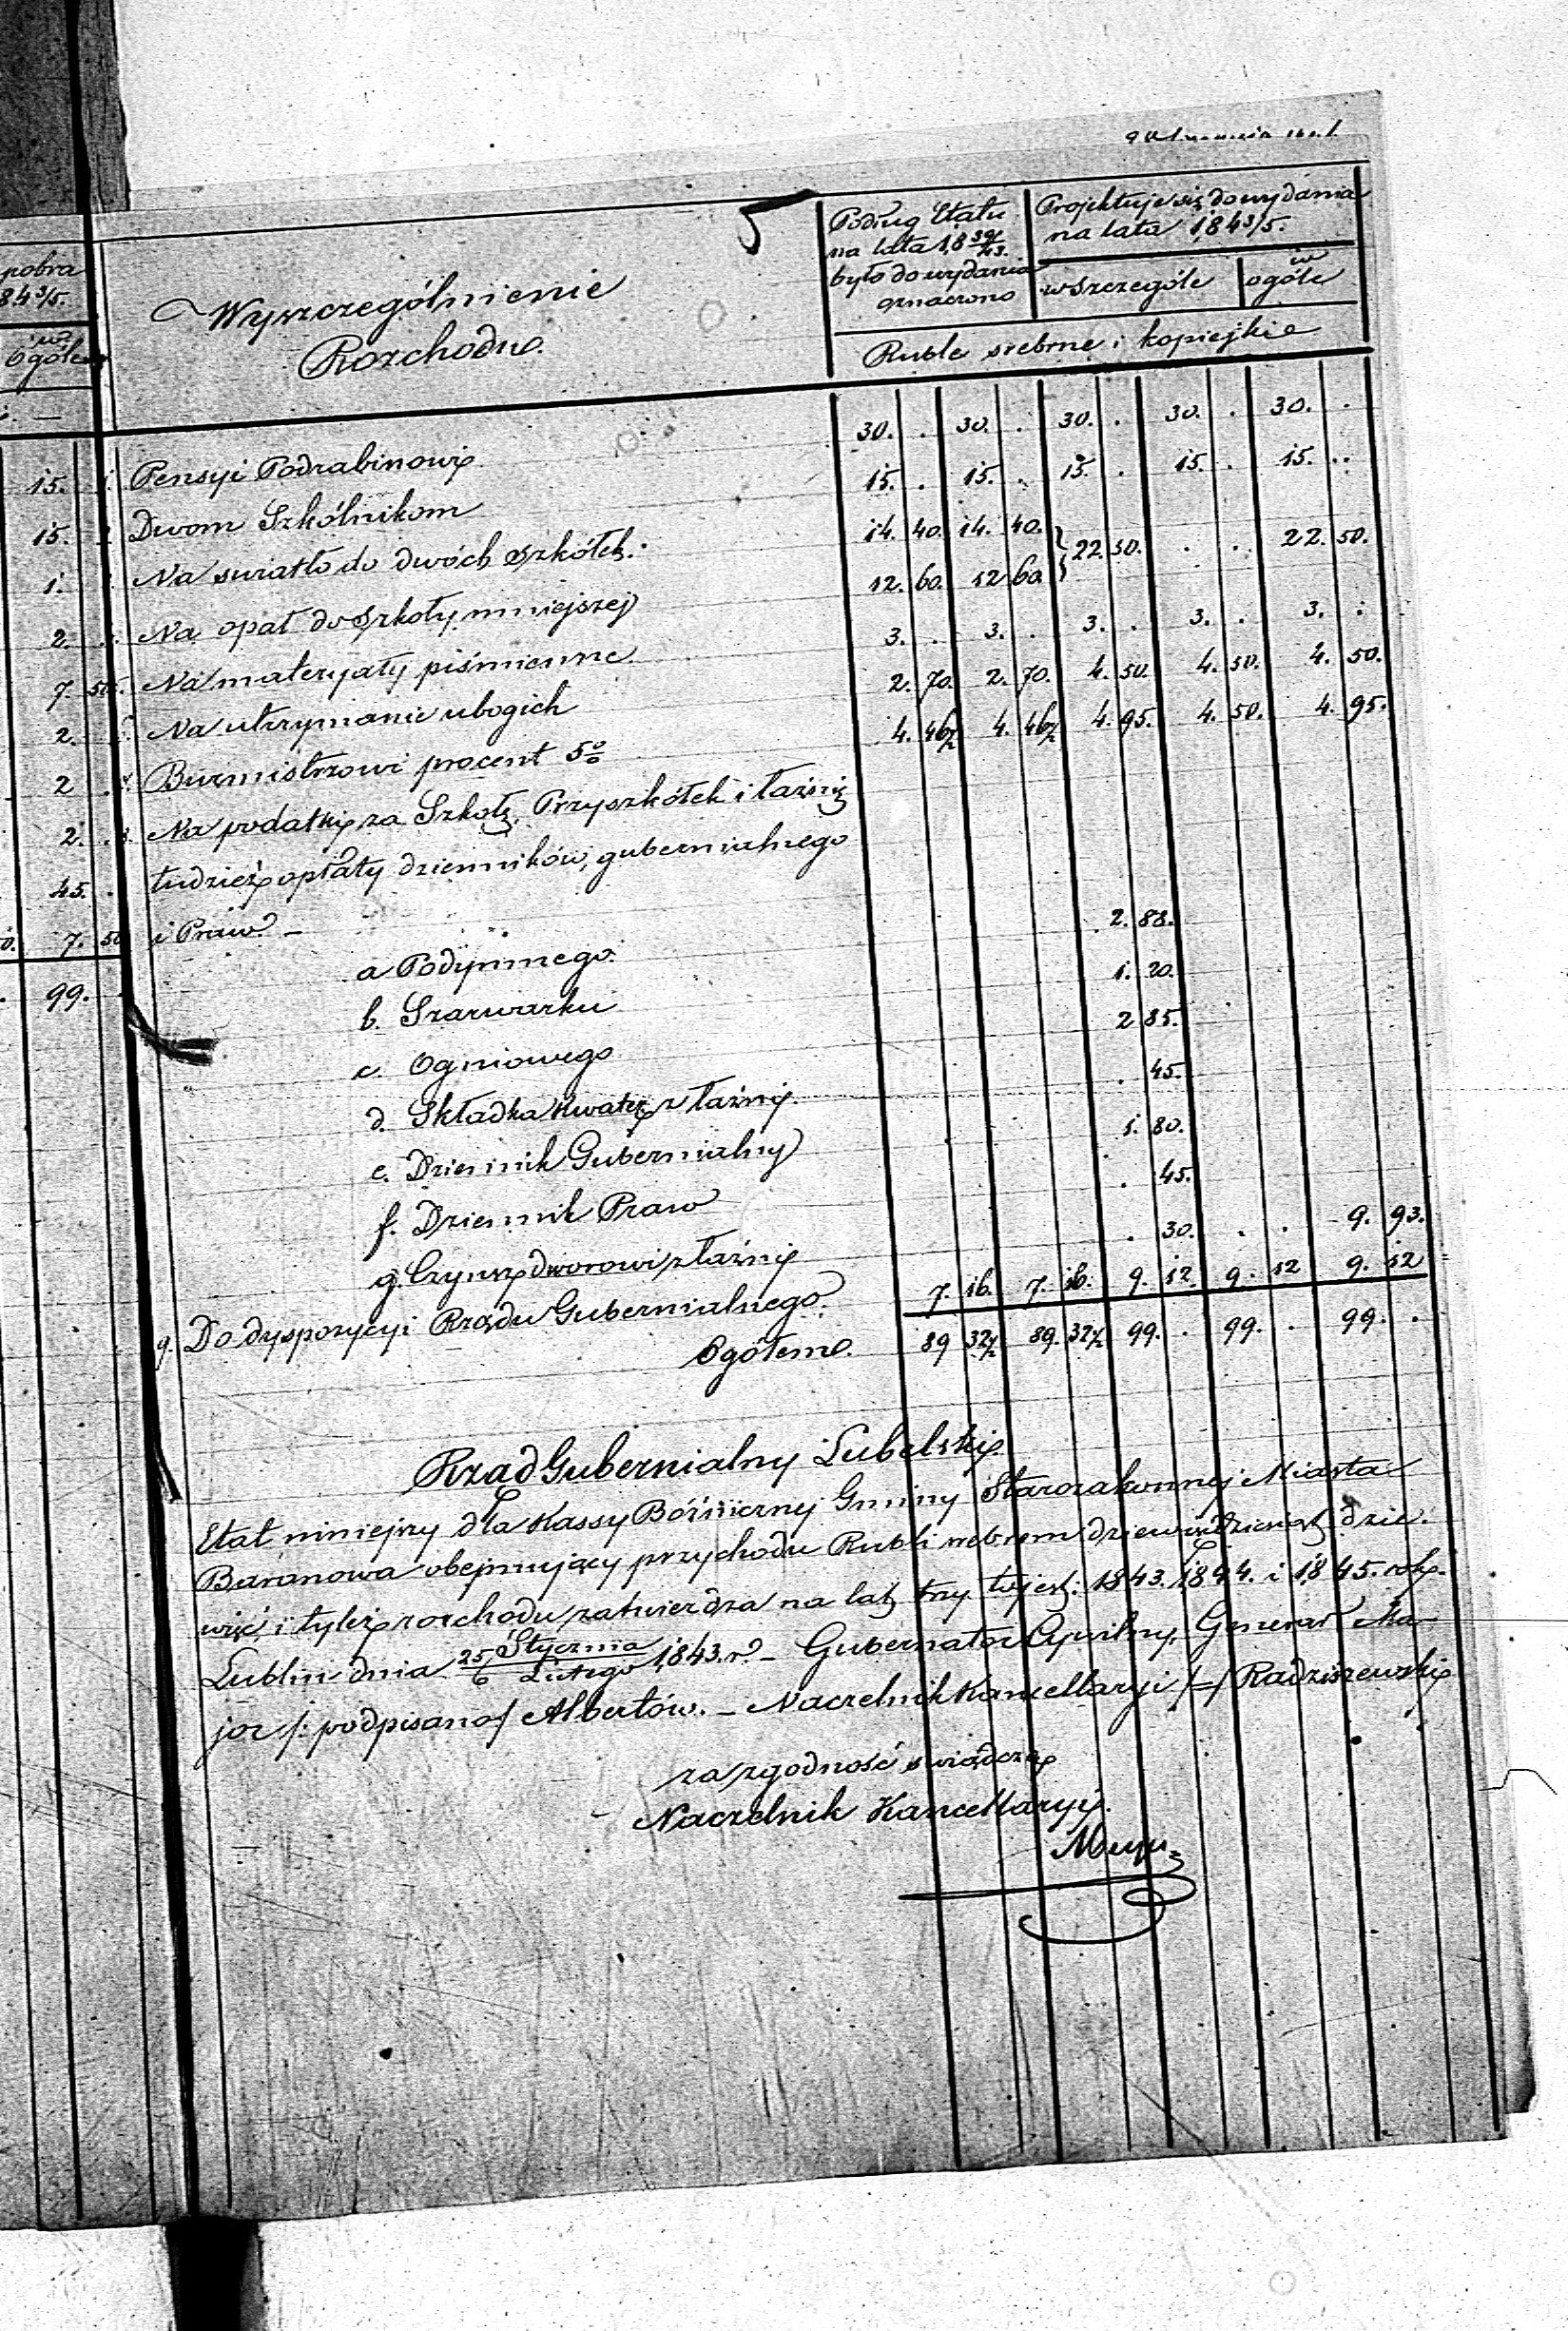 pobra
843/5.
w
Ogóle
15.
15.
1.
2.
7. 50.
2.
2
2.
45.
7. 50
99.
5
Wyszczególnienie
Rozchodu.
Podług Etatu
na lata 1839/43.
było do wydania
oznaczono
Projektuje się do wydania
na lata 1843/5.
w szczególe
w
ogóle
Ruble srebrne i kopiejki
Pensyi Podrabinowi 30. . 30. . 30. . 30. . 30. .
Dwom Szkólnikom 15. . 15. . 15. . 15. . 15. .
Na swiatło do dwóch szkółek. 14. 40. 14. 40. } 22. 50. . . 22. 50.
Na opał do szkoły mniejszej 12. 60. 12 60.
Na materyały piśmienne 3. . 3. . 3. . 3. . 3. .
Na utrzymanie ubogich 2. 70. 2. 70. 4. 50. 4. 50. 4. 50.
Burmistrzowi procent 5% 4. 46½ 4. 46½ 4. 95. 4. 50. 4. 95.
Na podatki za Szkołę, Przyszkółek i łaźnię
tudzież opłaty dzienników, gubernialnego
i Praw –
a Podymnego. 2. 88.
b. Szarwarku 1. 20.
c. Ogniowego 2 85.
d. Składka kwater. z łaźni . 45.
e. Dziennik Gubernialny 1. 80.
f. Dziennik Praw . 45.
g. Czynsz dworowi z łaźni . 30. . . 9. 93.
9. Do dyspozycyi Rządu Gubernialnego. 7. 16. 7. 16. 9. 12. 9. 12 9. 12
Ogółem. 89 32½ 89. 32½ 99. . 99. . 99. .
Rząd Gubernialny Lubelski.
Etat niniejszy dla Kassy Bóźniczny Gminy Starozakonnej Miasta
Baranowa obejmujący przychodu Rubli srebrem dziewięćdziesiąt dzie-
więć, i tyleż rozchodu, zatwierdza na lat trzy to jest: 1843. 1844. i 1845. roku.
Lublin dnia 25/6 Stycznia/Lutego 1843. r. – Gubernator Cywilny, Generał Ma-
jor /: podpisano / Albertów. – Naczelnik Kancellaryi /–/ Radziszewski
za zgodność świadczę
Naczelnik Kancellaryi.